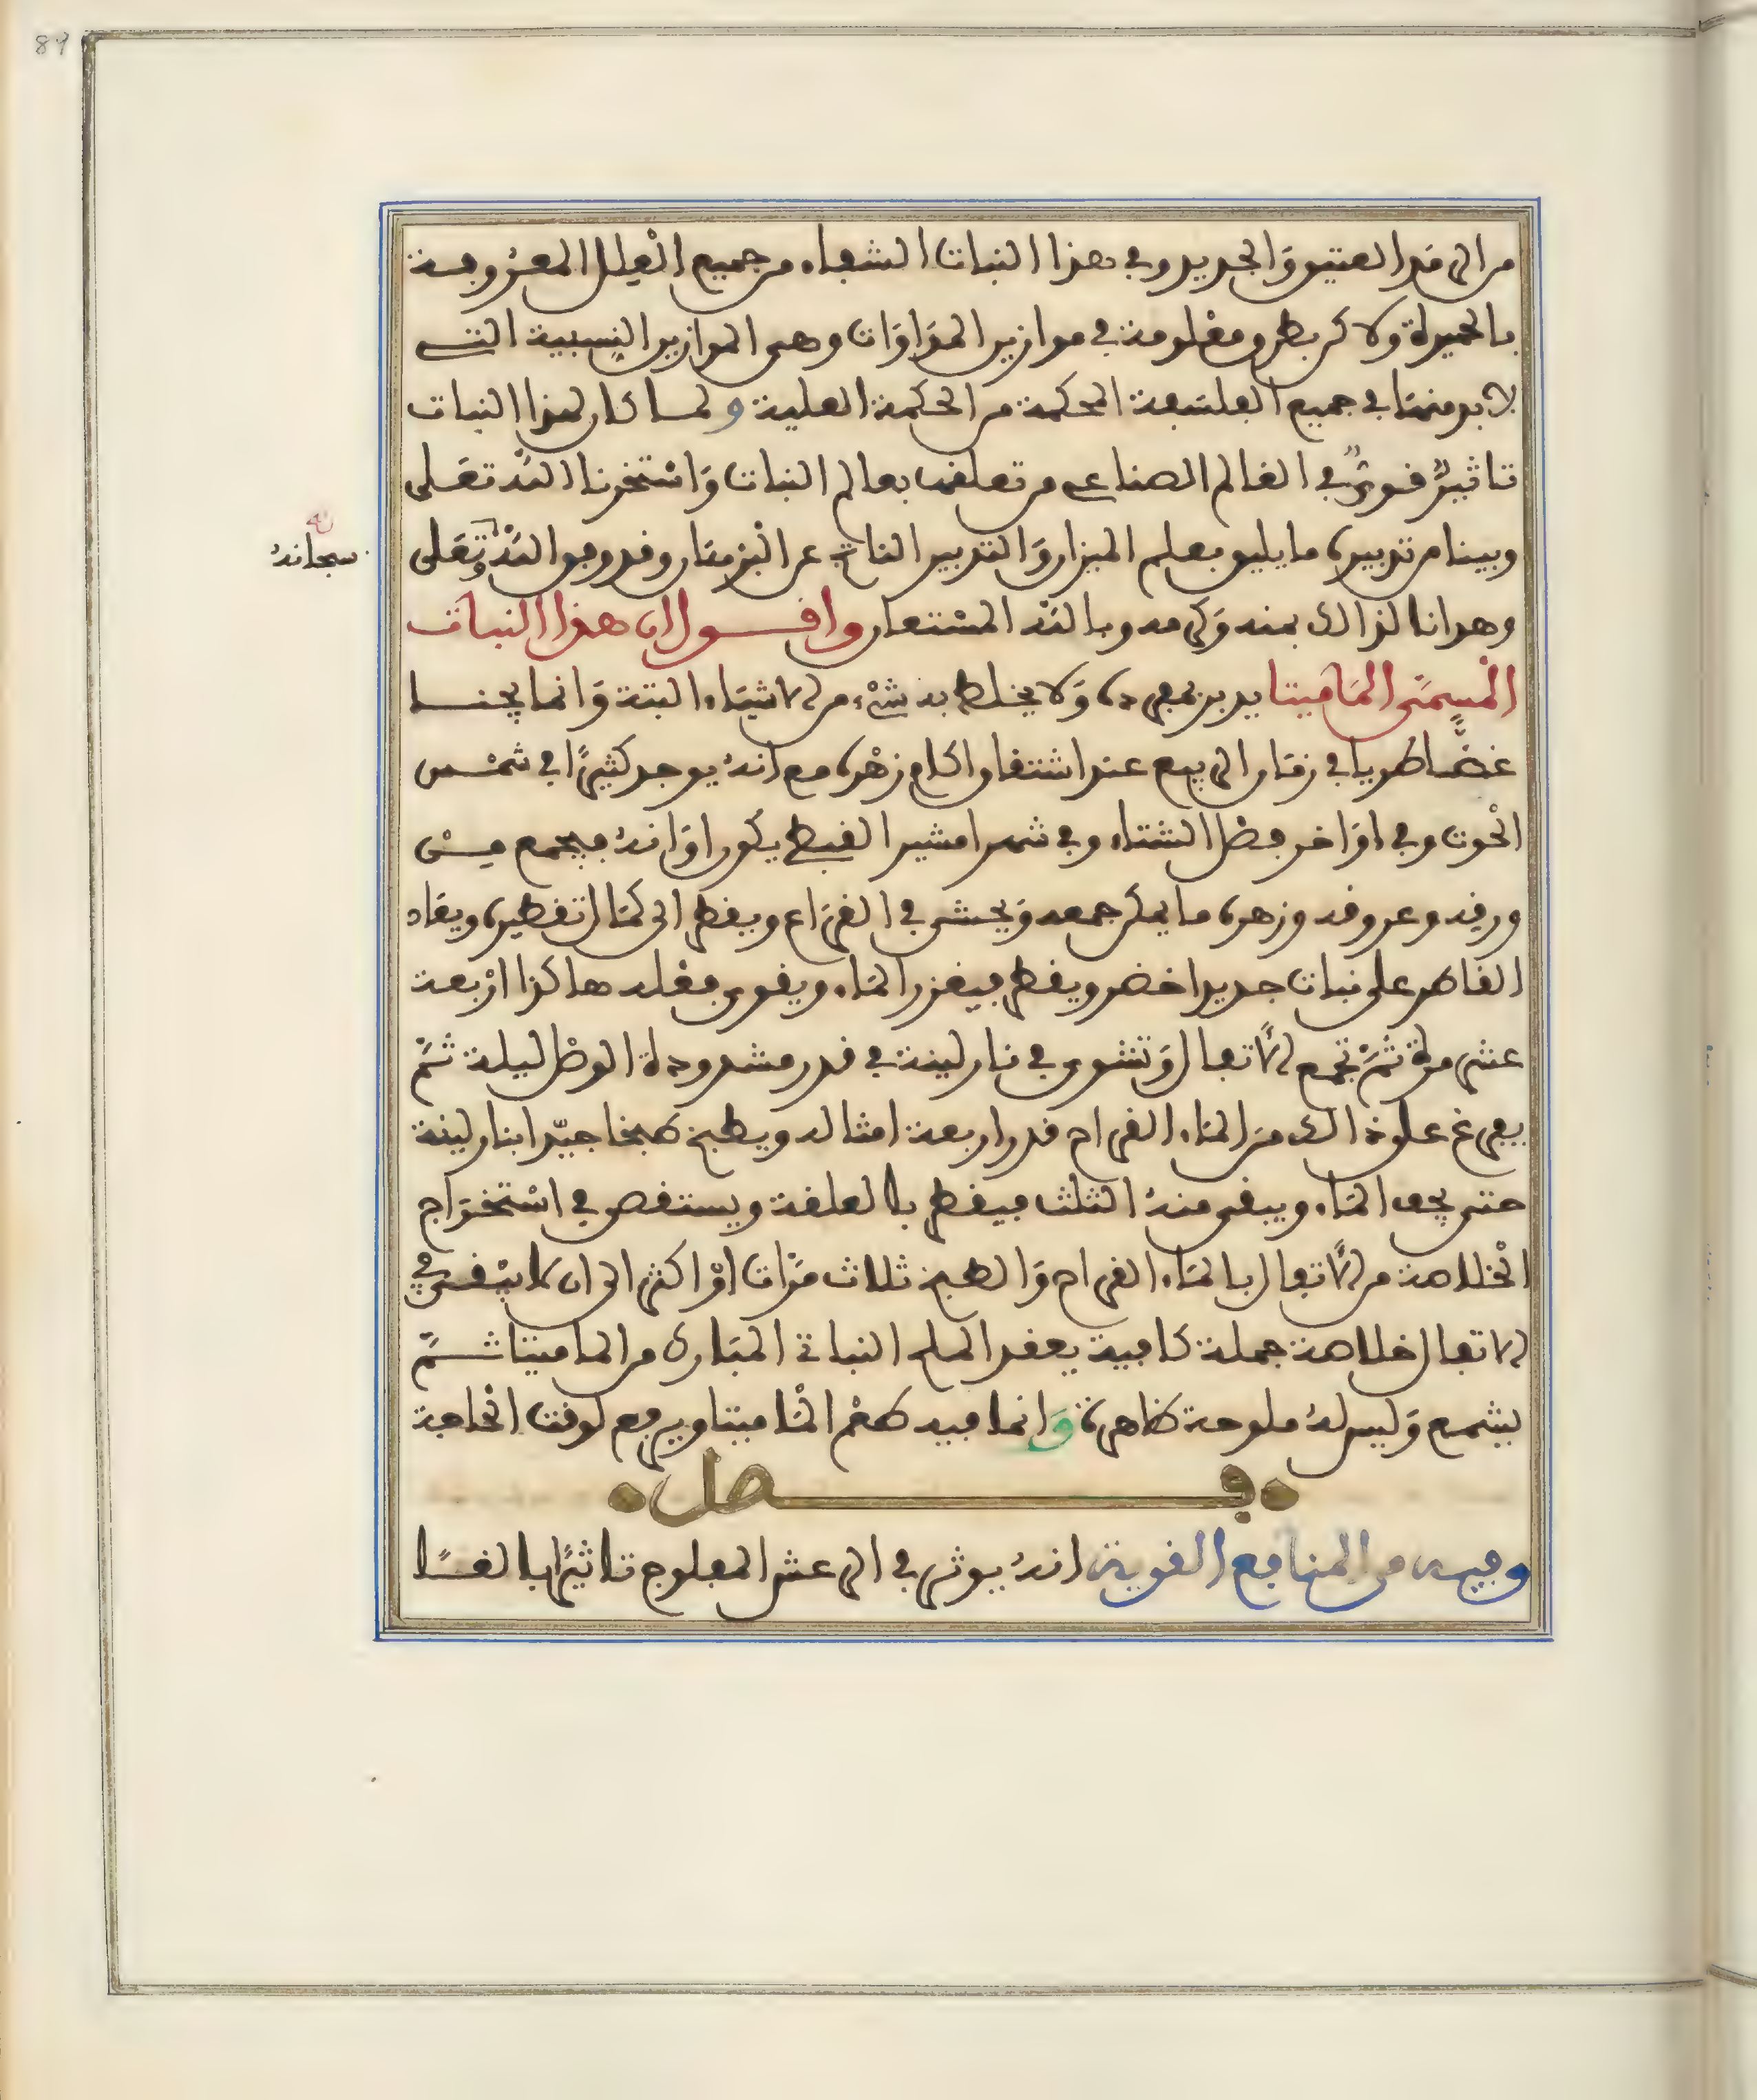 89
من الرمد العتيق والجديد وفي هذا النبات الشفاء من جميع العلل المعروفة
بالحميرة ولاكن بطرق معلومة في موازين المداوات وهي الموازين النسبية التي
لا بد منها في جميع الفلسفة المحكمة من الحكمة العلية ولما كان لهذا النبات
تاثير قوي في العالم الصناعي من تعلقه بعالم النبات واستخرنا الله تعلى
وبينا من تدبيره ما يليق بعلم الميزان والتدبير الناتج عن البرهان وقد وفق الله وتعلى
سبحانه
وهدانا لذالك بمنه وكرمه وبالله المستعان واقول ان هذا النبات
المسمى الماميتا يدبر بمفرده ولا يخلط به شيء من الاشياء البتة وانما يجنا
غضا طريا في زمان الربيع عند اشتقاق اكمام زهره مع انه يوجد كثيرا في شمس
الحوت وفي اواخر فصل الشتاء وفي شهر امشير القبطي يكون اوانه فيجمع من
ورقه وعروقه وزهره ما يمكن جمعه ويحشى في القراع ويقطر الى كمال تقطيره ويعاد
القاطر على نبات جديد اخضر ويقطر فيغزر الماء ويقوى فعله هاكذا اربعة
عشر مرة ثم تجمع الاتفال وتشوى في نار لينة في قدر مشدودة الوصل ليلة ثم
يفرغ على ذالك من الماء القراح قدر اربعة امثاله ويطبخ طبخا جيدا بنار لينة
حتى يجف الماء ويبقى منه الثلث فيقطر بالعلقة ويستقصى في استخراج
الخلاصة من الاتفال بالماء القراح والطبخ ثلاث مرات او اكثر الى ان لا يبقى في
الاتفال خلاصة جملة كافية يعقد الملح النباتي المبارك من الماميتا ثم
يشمع وليس له ملوحة ظاهرة وانما فيه طعم الماميتا ويرفع لوقت الحاجة
فصل
وفيه من المنافع القوية انه يوثر في الرعش المفلوج تاثيرا بالغا